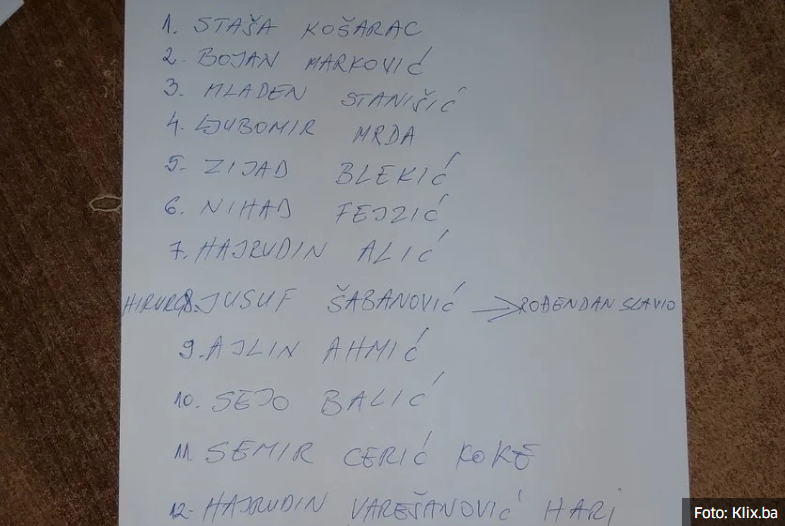 1. STAŠA KOŠARAC
2. BOJAN MARKOVIĆ
3. MLADEN STANIŠIĆ
4. LJUBOMIR MRĐA
5. ZIJAD BLEKIĆ
6. NIHAD FEJZIĆ
7. HAJRUDIN ALIĆ
HIRURG 8. JUSUF ŠABANOVIĆ → ROĐENDAN SLAVIO
9. AJLIN AHMIĆ
10. SEJO BALIĆ
11. SEMIR CERIĆ KOKE
12. HAJRUDIN VAREŠANOVIĆ HARI
Foto: Klix.ba